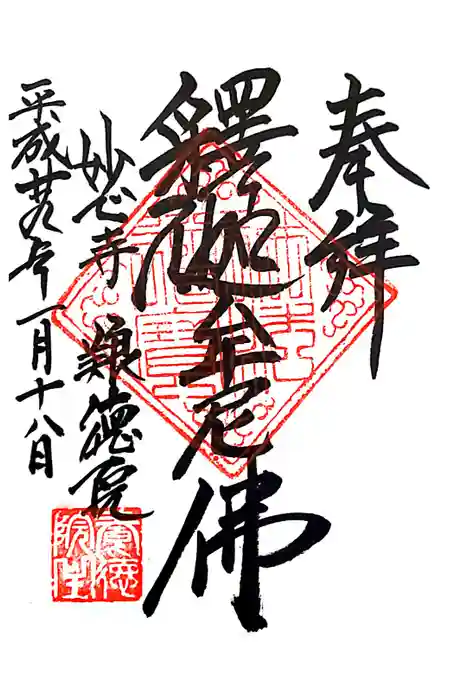 奉拝
釋迦牟尼佛
妙心寺 德院
平成廿九年一月十八日